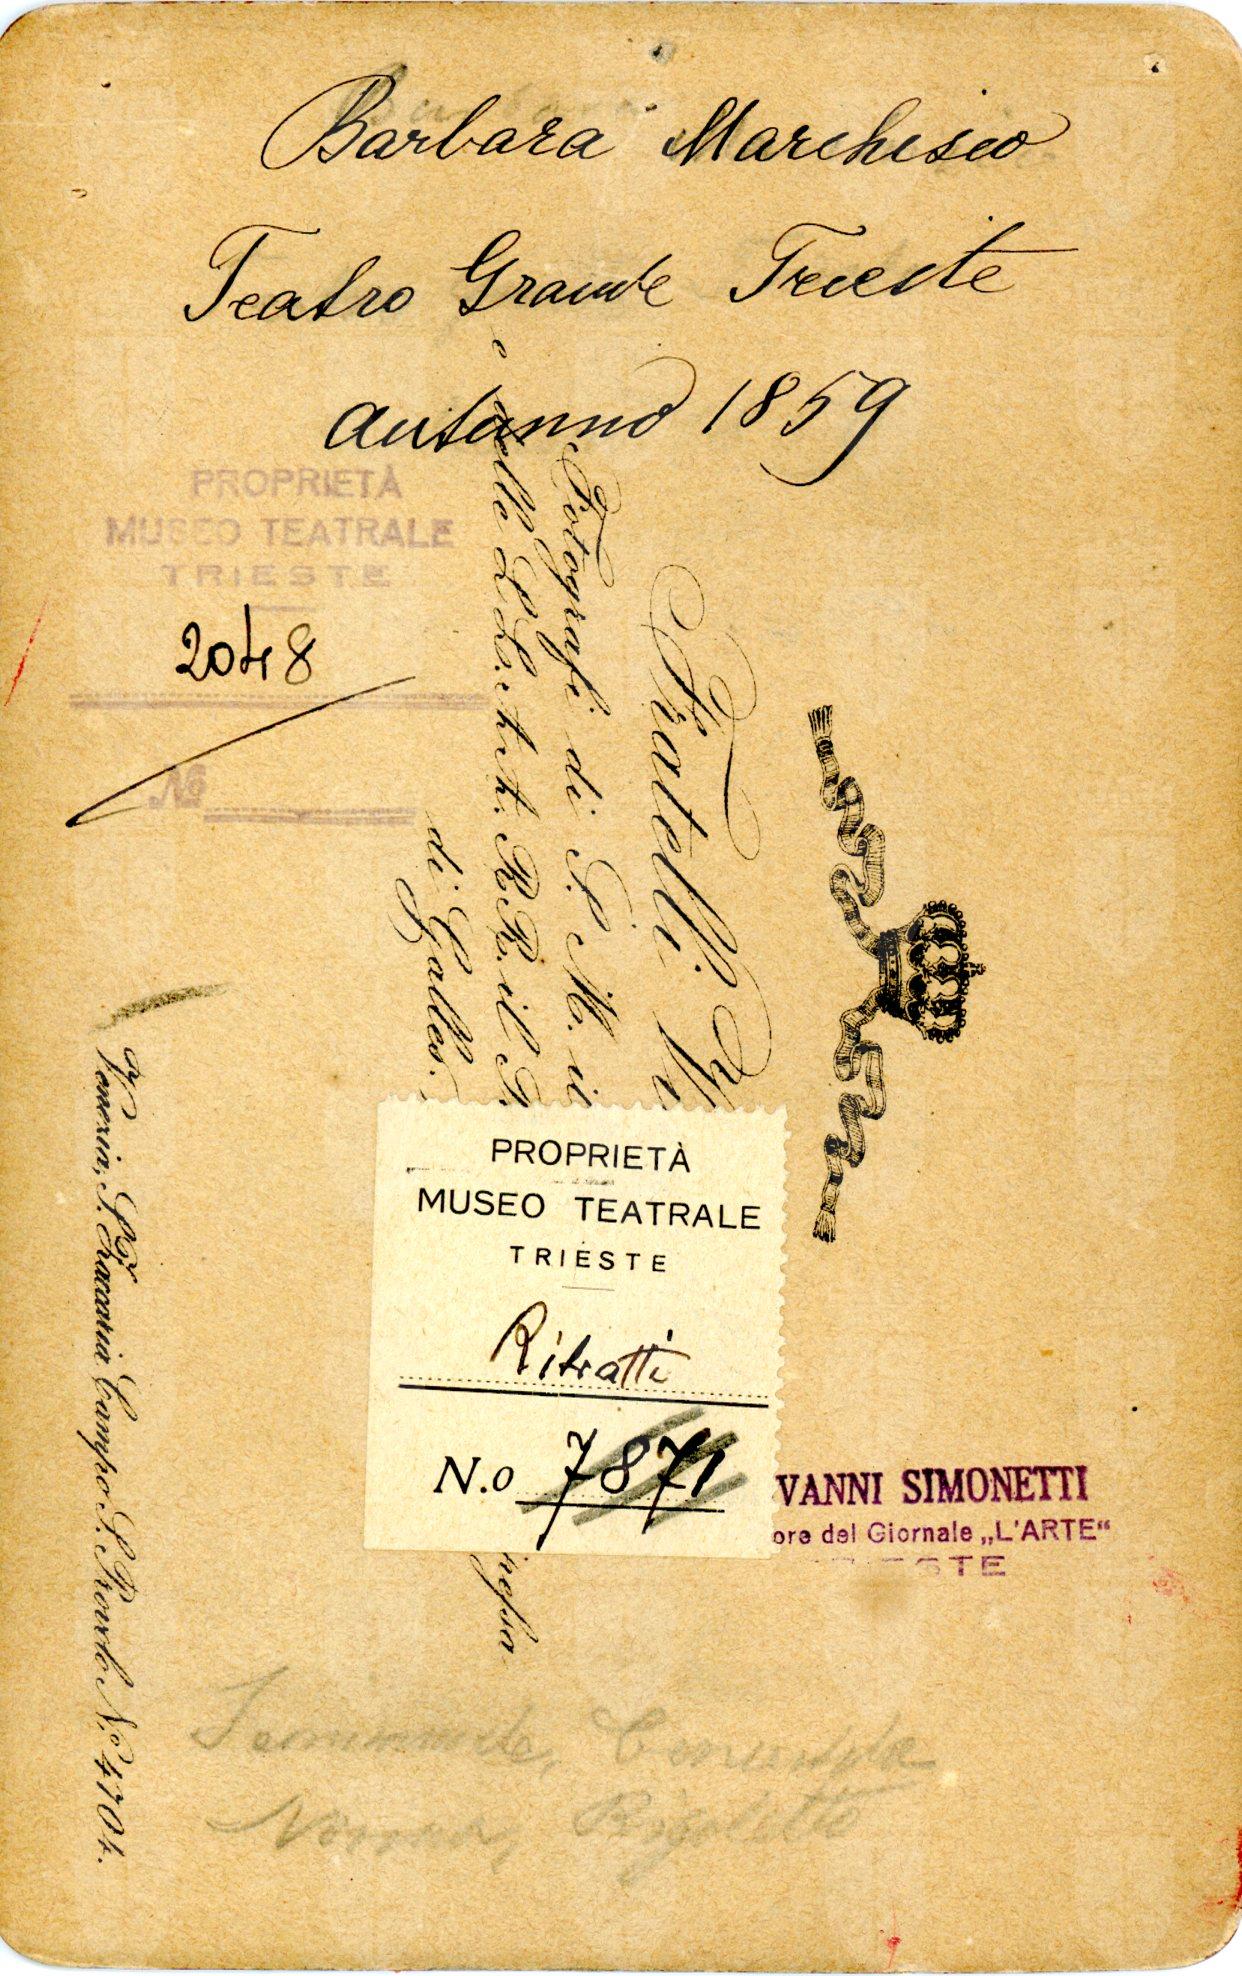 Barbara Marchisio
Teatro Grande Trieste
Autunno 1859
PROPRIETÀ
MUSEO TEATRALE
TRIESTE
2048
No
Fratelli
Fotografi di S. M. il
e delle LL. AA. RR. il
di Galles.
Venezia, S. Zaccaria Campo S. Provolo N.º 4704.
PROPRIETÀ
MUSEO TEATRALE
TRIESTE
Ritratti
N.o 7871
VANNI SIMONETTI
ore del Giornale „L'ARTE“
TRIESTE
Semiramide, Cenerentola
Norma, Rigoletto